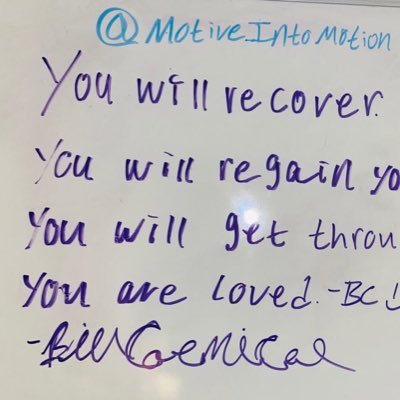 @MotiveIntoMotion
You will recover.
You will regain yo
You will get throu
You are loved. -BC
-Bill